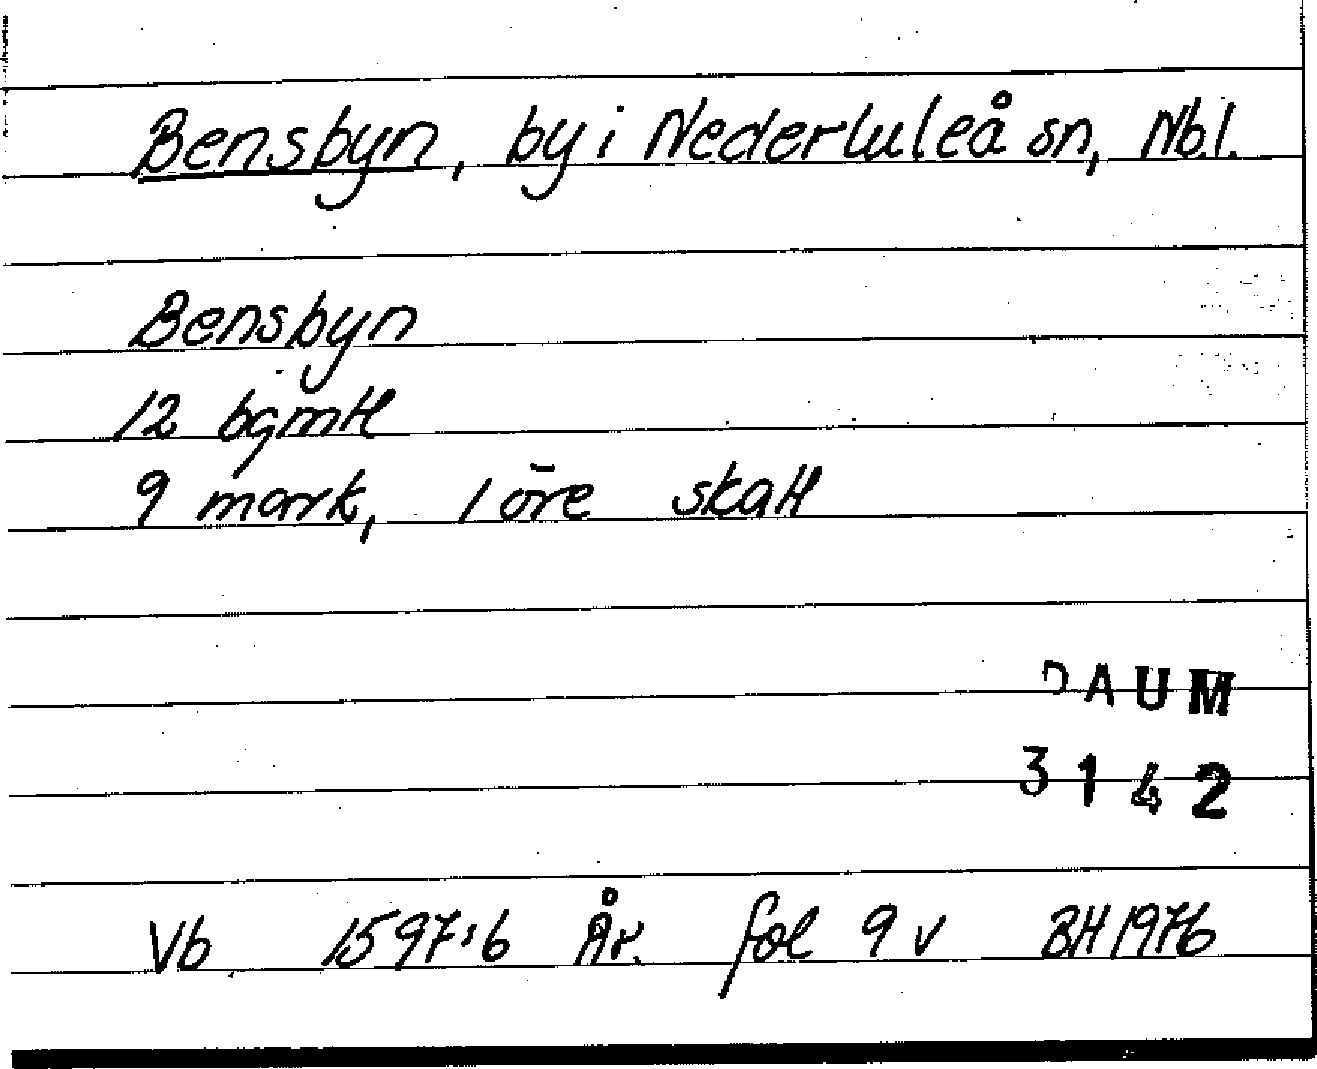 Bensbyn, by i Nederluleå sn, Nb.l.
Bensbyn
12 bgmtl
9 mark, 1 öre skatt
DAUM
3142
Vb 1597:6 År. fol 9 v BH 1976